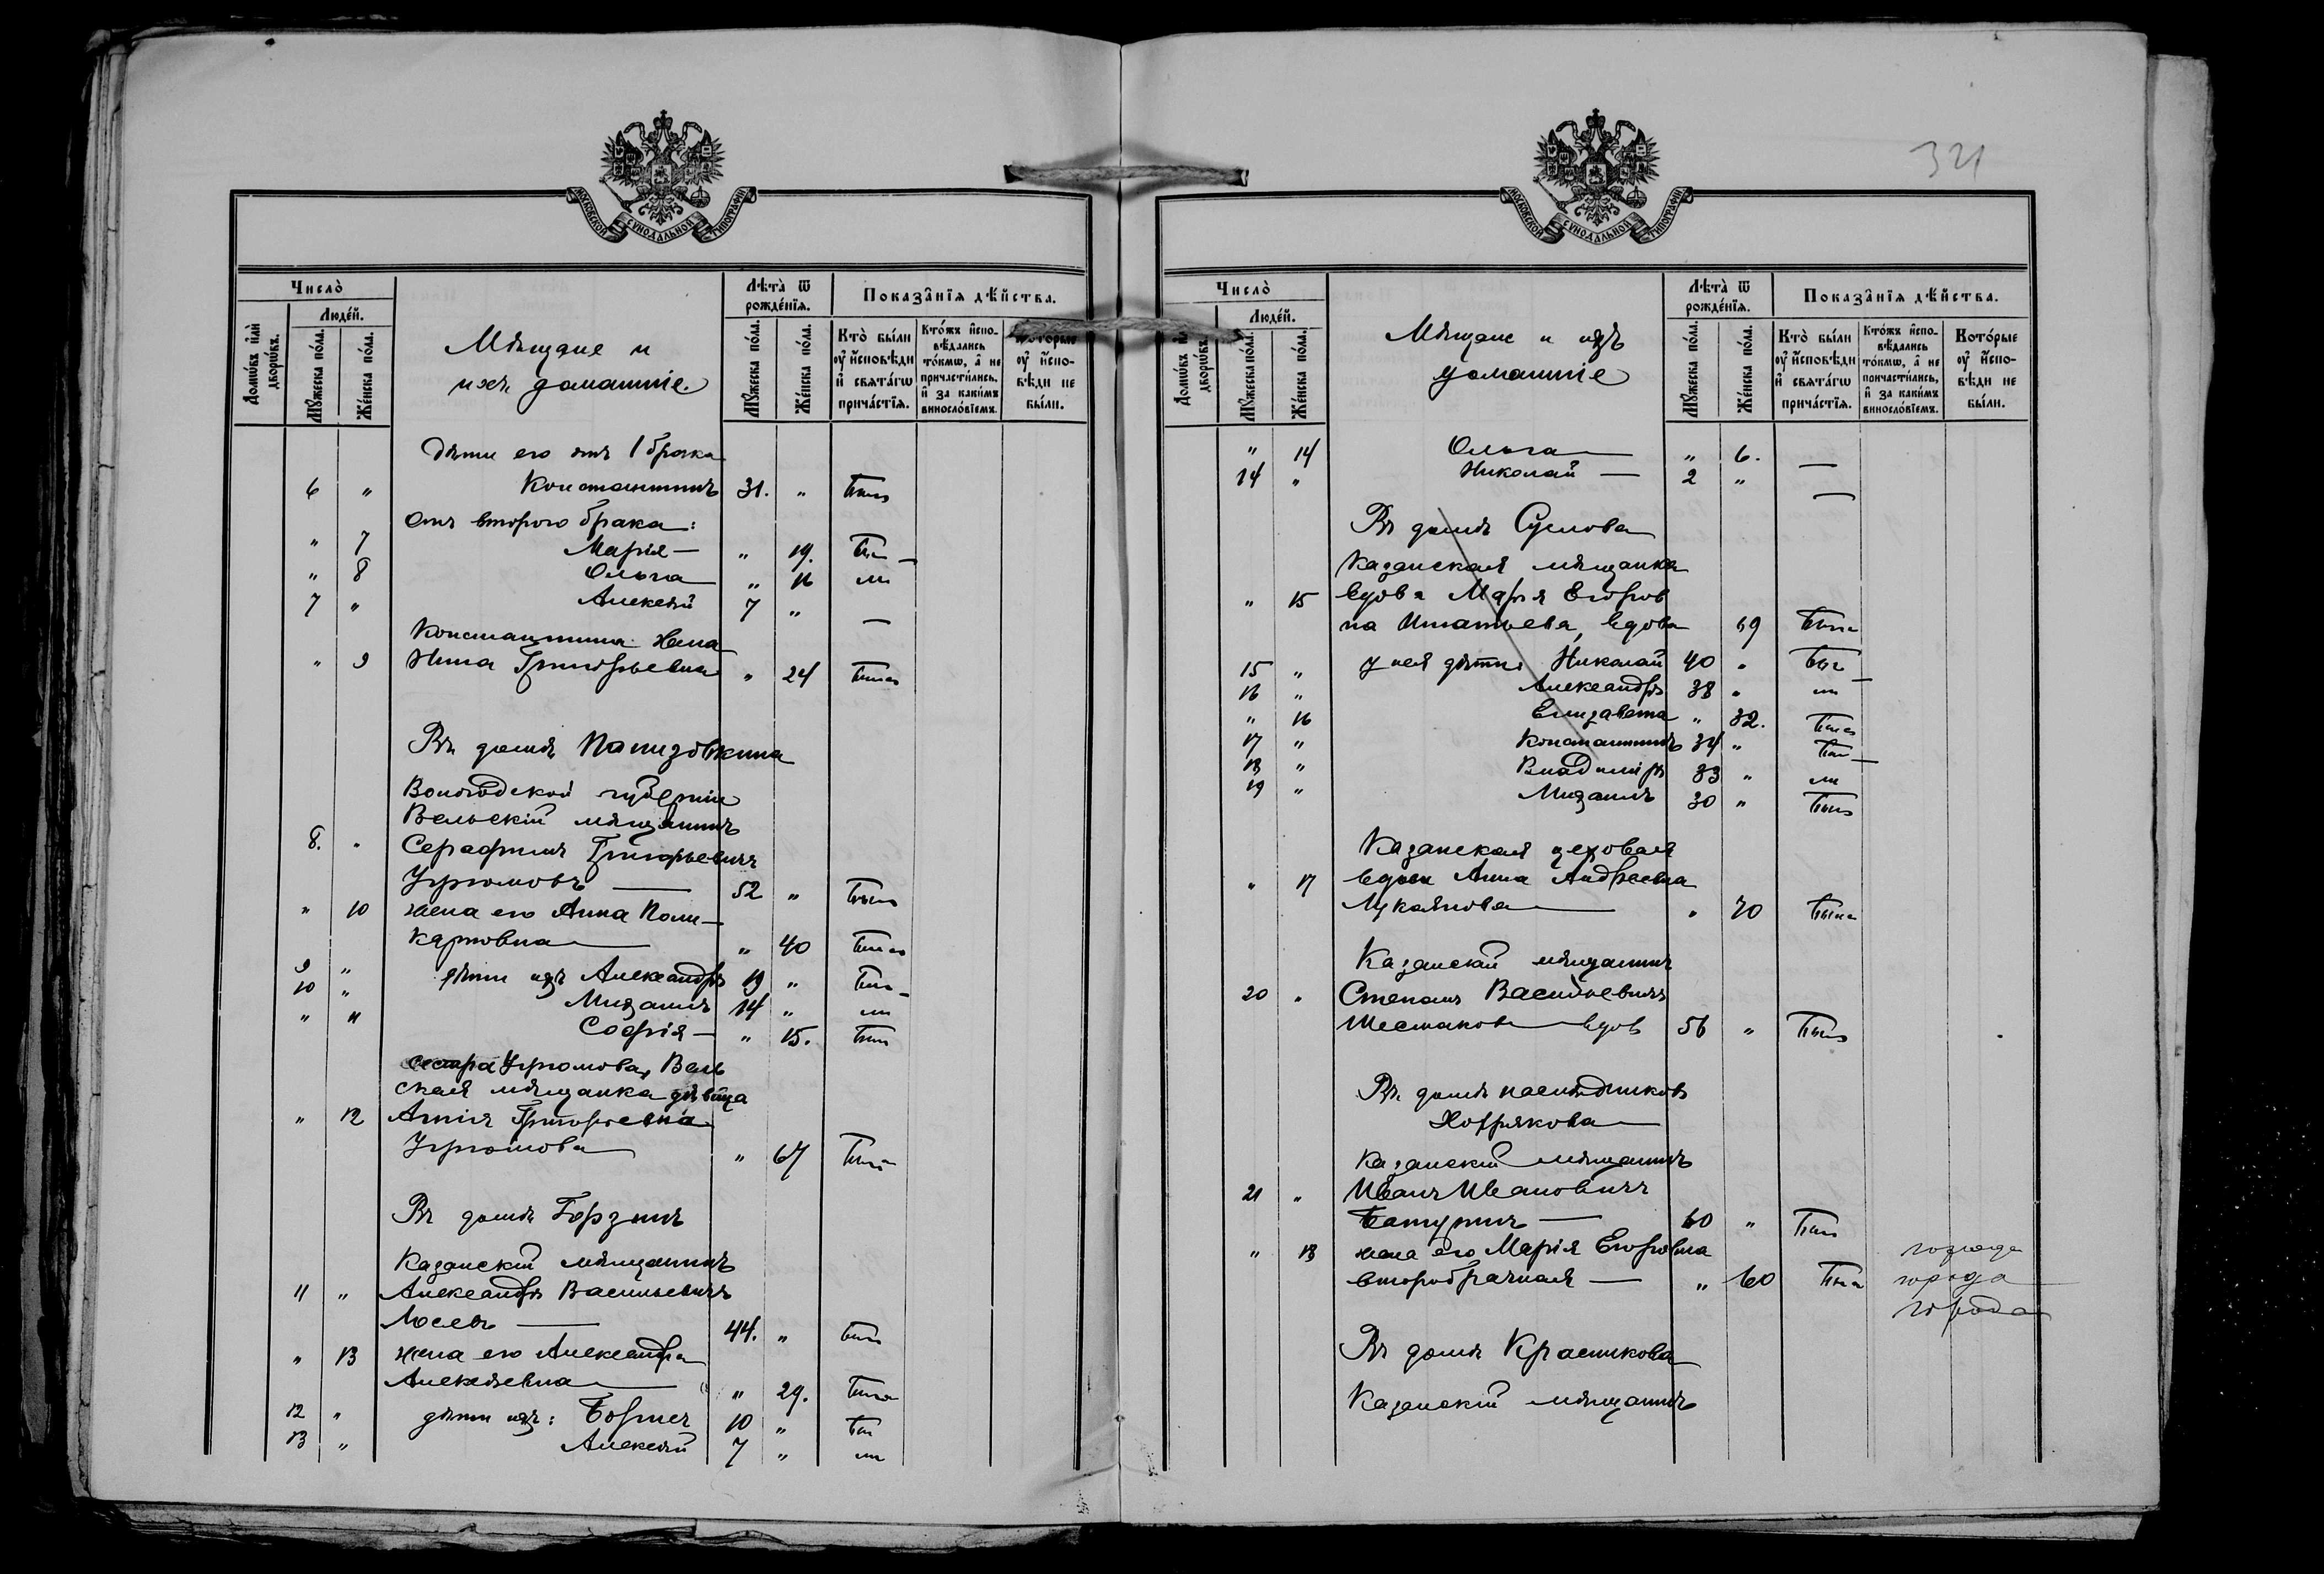 МОСКОВСКОЙ СУНОДАЛЬНОЙ ТИПОГРАФІИ
Число̀
Домѡ́въ и҆лѝ дворѡ́въ.
Люде́й.
Мꙋ́жеска по́ла.
Же́нска по́ла.
Мѣщане и
ихъ домашніе.
Лѣта̀ ѿ рожде́нїѧ.
Мꙋ́жеска по́ла.
Же́нска по́ла.
Показа̑нїѧ дѣ́йства.
Кто̀ бы́ли ᲂу҆ и҆сповѣди и҆ свѧта́гѡ прича́стїѧ.
Кто́жъ и҆спо-вѣдались то́кмѡ, а҆ не причасти́лись, и҆ за каки́мъ винослѡ́вїемъ.
Кото́рые ᲂу҆ и҆спо-вѣди не бы́ли.
Дѣти его отъ 1 брака
6 " Константинъ 31. " Былъ
Отъ второго брака:
" 7 Марія — " 19. Бы —
" 8 Ольга " 16 ли
7 " Алексѣй 7 " —
Константина жена
" 9 Нина Григорьевна " 24 Была
Въ домѣ
Вологодской губерніи
Вельскій мѣщанинъ
8. " Серафимъ Григорьевичъ
Угрюмовъ — 52 " Былъ
" 10 жена его Анна Поли-
карповна " 40 Была
9 " дѣти ихъ Александръ 19 " Бы —
10 " Михаилъ 14 " ли
" 11 Софія — " 15. Была
сестра Угрюмова, Вель
ская мѣщанка дѣвица
" 12 Агнія Григорьевна
Угрюмова " 67 Была
Въ домѣ Горзинъ
Казанскій мѣщанинъ
11 " Александръ Васильевичъ
Лосевъ — 44. " Былъ
" 13 жена его Александра
Алексѣевна " 29. Была
12 " дѣти ихъ: Борисъ 10 " Бы
13 " Алексѣй 7 " ли
321
МОСКОВСКОЙ СУНОДАЛЬНОЙ ТИПОГРАФІИ
Число̀
Домѡ́въ и҆лѝ дворѡ́въ.
Люде́й.
Мꙋ́жеска по́ла.
Же́нска по́ла.
Мѣщане и ихъ
домашніе
Лѣта̀ ѿ рожде́нїѧ.
Мꙋ́жеска по́ла.
Же́нска по́ла.
Показа̑нїѧ дѣ́йства.
Кто̀ бы́ли ᲂу҆ и҆сповѣди и҆ свѧта́гѡ прича́стїѧ.
Кто́жъ и҆спо-вѣдались то́кмѡ, а҆ не причасти́лись, и҆ за каки́мъ винослѡ́вїемъ.
Кото́рые ᲂу҆ и҆спо-вѣди не бы́ли.
" 14 Ольга " 6. —
14 " Николай — 2 " —
Въ домѣ Суслова
Казанская мѣщанка
" 15 вдова Марія Егоров
на Игнатьева, вдова 69 Была
15 " у нея дѣти: Николай 40 " Бы —
16 " Александръ 38 " ли
" 16 Елизавета " 32. Была
17 " Константинъ 34 " Бы —
18 " Владиміръ 33 " ли
19 " Михаилъ 30 " Былъ
Казанская цеховая
" 17 вдова Анна Андреевна
Лукоянова " 70 Была
Казанскій мѣщанинъ
20 " Степанъ Васильевичъ
Шестаковъ вдов 56 " Былъ
Въ домѣ наслѣдниковъ
Хохрякова
Казанскій мѣщанинъ
21 " Иванъ Ивановичъ
Батуринъ — 60 " Былъ
" 18 жена его Марія Егоровна
второбрачная — " 60 Была
города
города
города
Въ домѣ Красикова
Казанскій мѣщанинъ